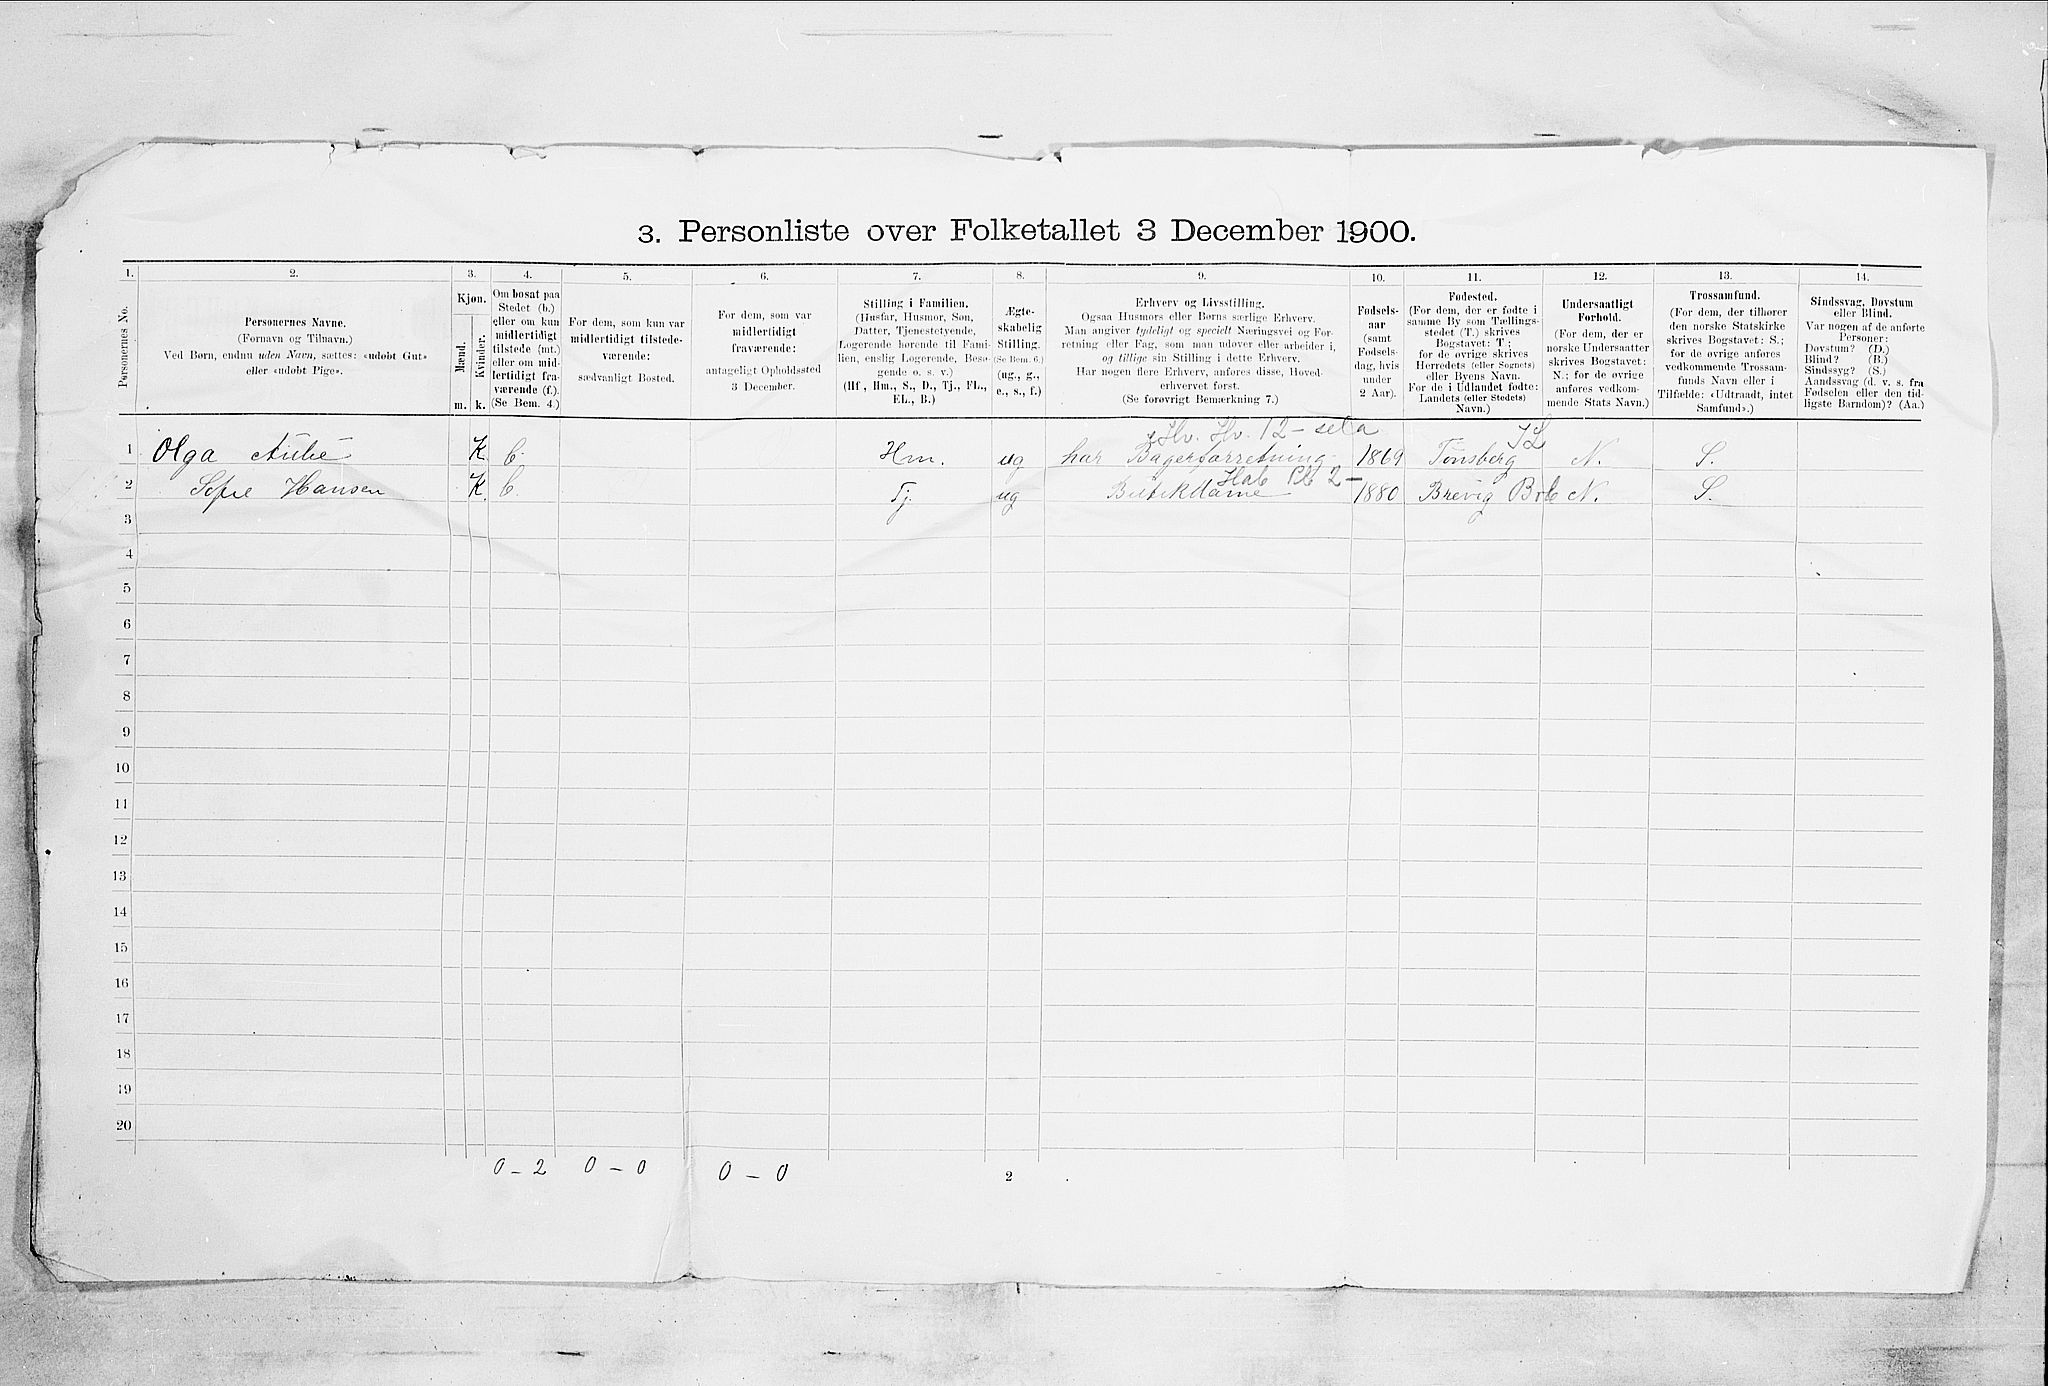 3. Personliste over Folketallet 3 December 1900.
1. 2. 3. 4. 5. 6. 7. 8. 9. 10. 11. 12. 13. 14.
Personernes No.
Personernes Navne.
(Fornavn og Tilnavn.)
Ved Børn, endnu uden Navn, sættes: «udøbt Gut»
eller «udøbt Pige».
Kjøn.
Mænd.
Kvinder.
m. k.
Om bosat paa
Stedet (b.)
eller om kun
midlertidigt
tilstede (mt.)
eller om mid-
lertidigt fra-
værende (f.).
(Se Bem. 4.)
For dem, som kun var
midlertidigt tilstede-
værende:
sædvanligt Bosted.
For dem, som var
midlertidigt
fraværende:
antageligt Opholdssted
3 December.
Stilling i Familien.
(Husfar, Husmor, Søn,
Datter, Tjenestetyende,
Logerende hørende til Fami-
lien, enslig Logerende, Besø-
gende o. s. v.)
(Hf., Hm., S., D., Tj., FL.,
EL., B.)
Ægte-
skabelig
Stilling.
(Se Bem. 6.)
(ug., g.,
e., s., f.)
Erhverv og Livsstilling.
Ogsaa Husmors eller Børns særlige Erhverv.
Man angiver tydeligt og specielt Næringsvei og For-
retning eller Fag, som man udøver eller arbeider i,
og tillige sin Stilling i dette Erhverv.
Har nogen flere Erhverv, anføres disse, Hoved-
erhvervet først.
(Se forøvrigt Bemærkning 7.)
Fødsels-
aar
(samt
Fødsels-
dag, hvis
under
2 Aar).
Fødested.
(For dem, der er fødte i
samme By som Tællings-
stedet (T.) skrives
Bogstavet: T;
for de øvrige skrives
Herredets (eller Sognets)
eller Byens Navn.
For de i Udlandet fødte:
Landets (eller Stedets)
Navn.)
Undersaatligt
Forhold.
(For dem, der er
norske Undersaatter
skrives Bogstavet:
N.; for de øvrige
anføres vedkom-
mende Stats Navn.)
Trossamfund.
(For dem, der tilhører
den norske Statskirke
skrives Bogstavet: S.;
for de øvrige anføres
vedkommende Trossam-
funds Navn eller i
Tilfælde: «Udtraadt, intet
Samfund».)
Sindssvag, Døvstum
eller Blind.
Var nogen af de anførte
Personer:
Døvstum? (D.)
Blind? (B.)
Sindssyg? (S.)
Aandssvag (d. v. s. fra
Fødselen eller den tid-
ligste Barndom)? (Aa.)
1 Olga K b. Hm. ug har Bagerforretning 1869 Tønsberg N. S.
2 Hansen K. b. Tj. ug Butikdame 1880 Brevig N. S.
3
4
5
6
7
8
9
10
11
12
13
14
15
16
17
18
19
20
0 – 2 0 – 0 0 – 0 2